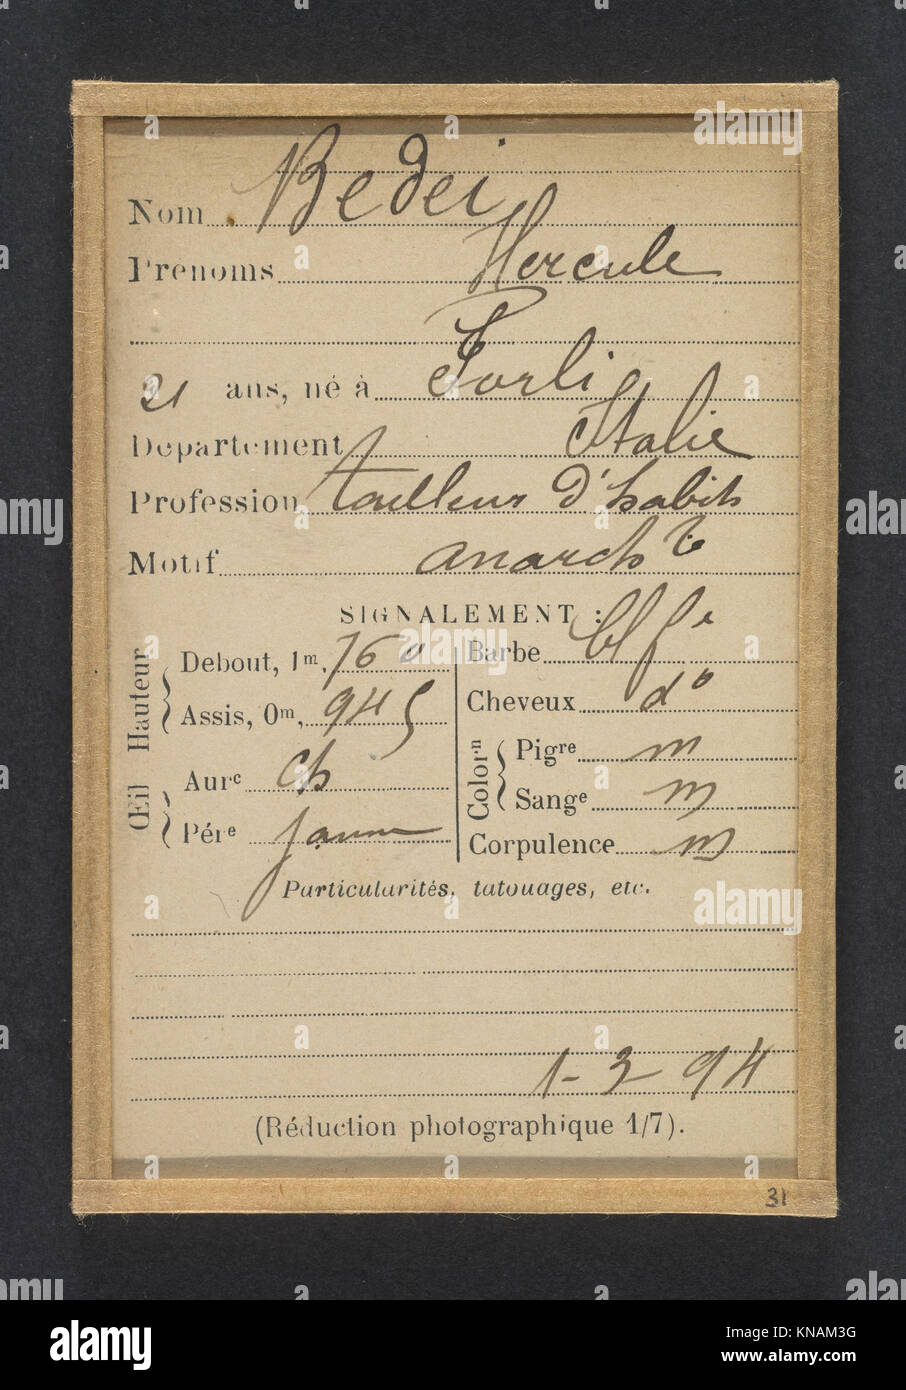 Nom Bedei
Prénoms Hercule
21 ans, né à Forli
Département Italie
Profession tailleur d'habits
Motif anarchte
SIGNALEMENT :
Hauteur
Debout, 1m, 76 0
Assis, 0m, 94 5
Œil
Aurc ch
Pére jaune
Barbe bl fe
Cheveux do
Colorn
Pigre m
Sange m
Corpulence m
Particularités, tatouages, etc.
1-3 94
(Réduction photographique 1/7).
31
a alamy stock photo
alamy
Image ID: KNAM3G
www.alamy.com